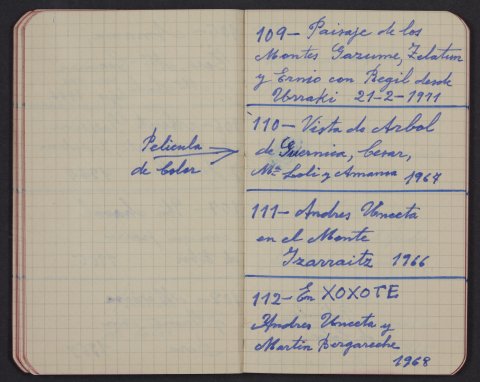 Pelicula
de Color
109- Paisaje de los
Montes Gazume, Zelatun
y Ernio con Regil desde
Urraki 21-2-1971
110- Vista do Arbol
de Guernica, Cesar,
Mª Loli y Amama 1967
111- Andres Unceta
en el Monte
Izarraitz 1966
112- En XOXOTE
Andres Unceta y
Martin Bergareche
1968